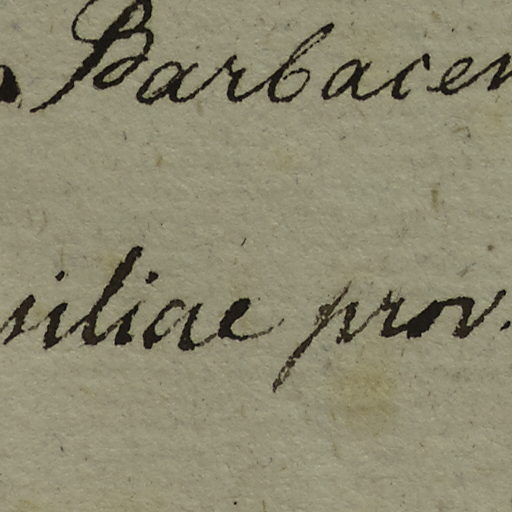 Barbacen
siliae prov.